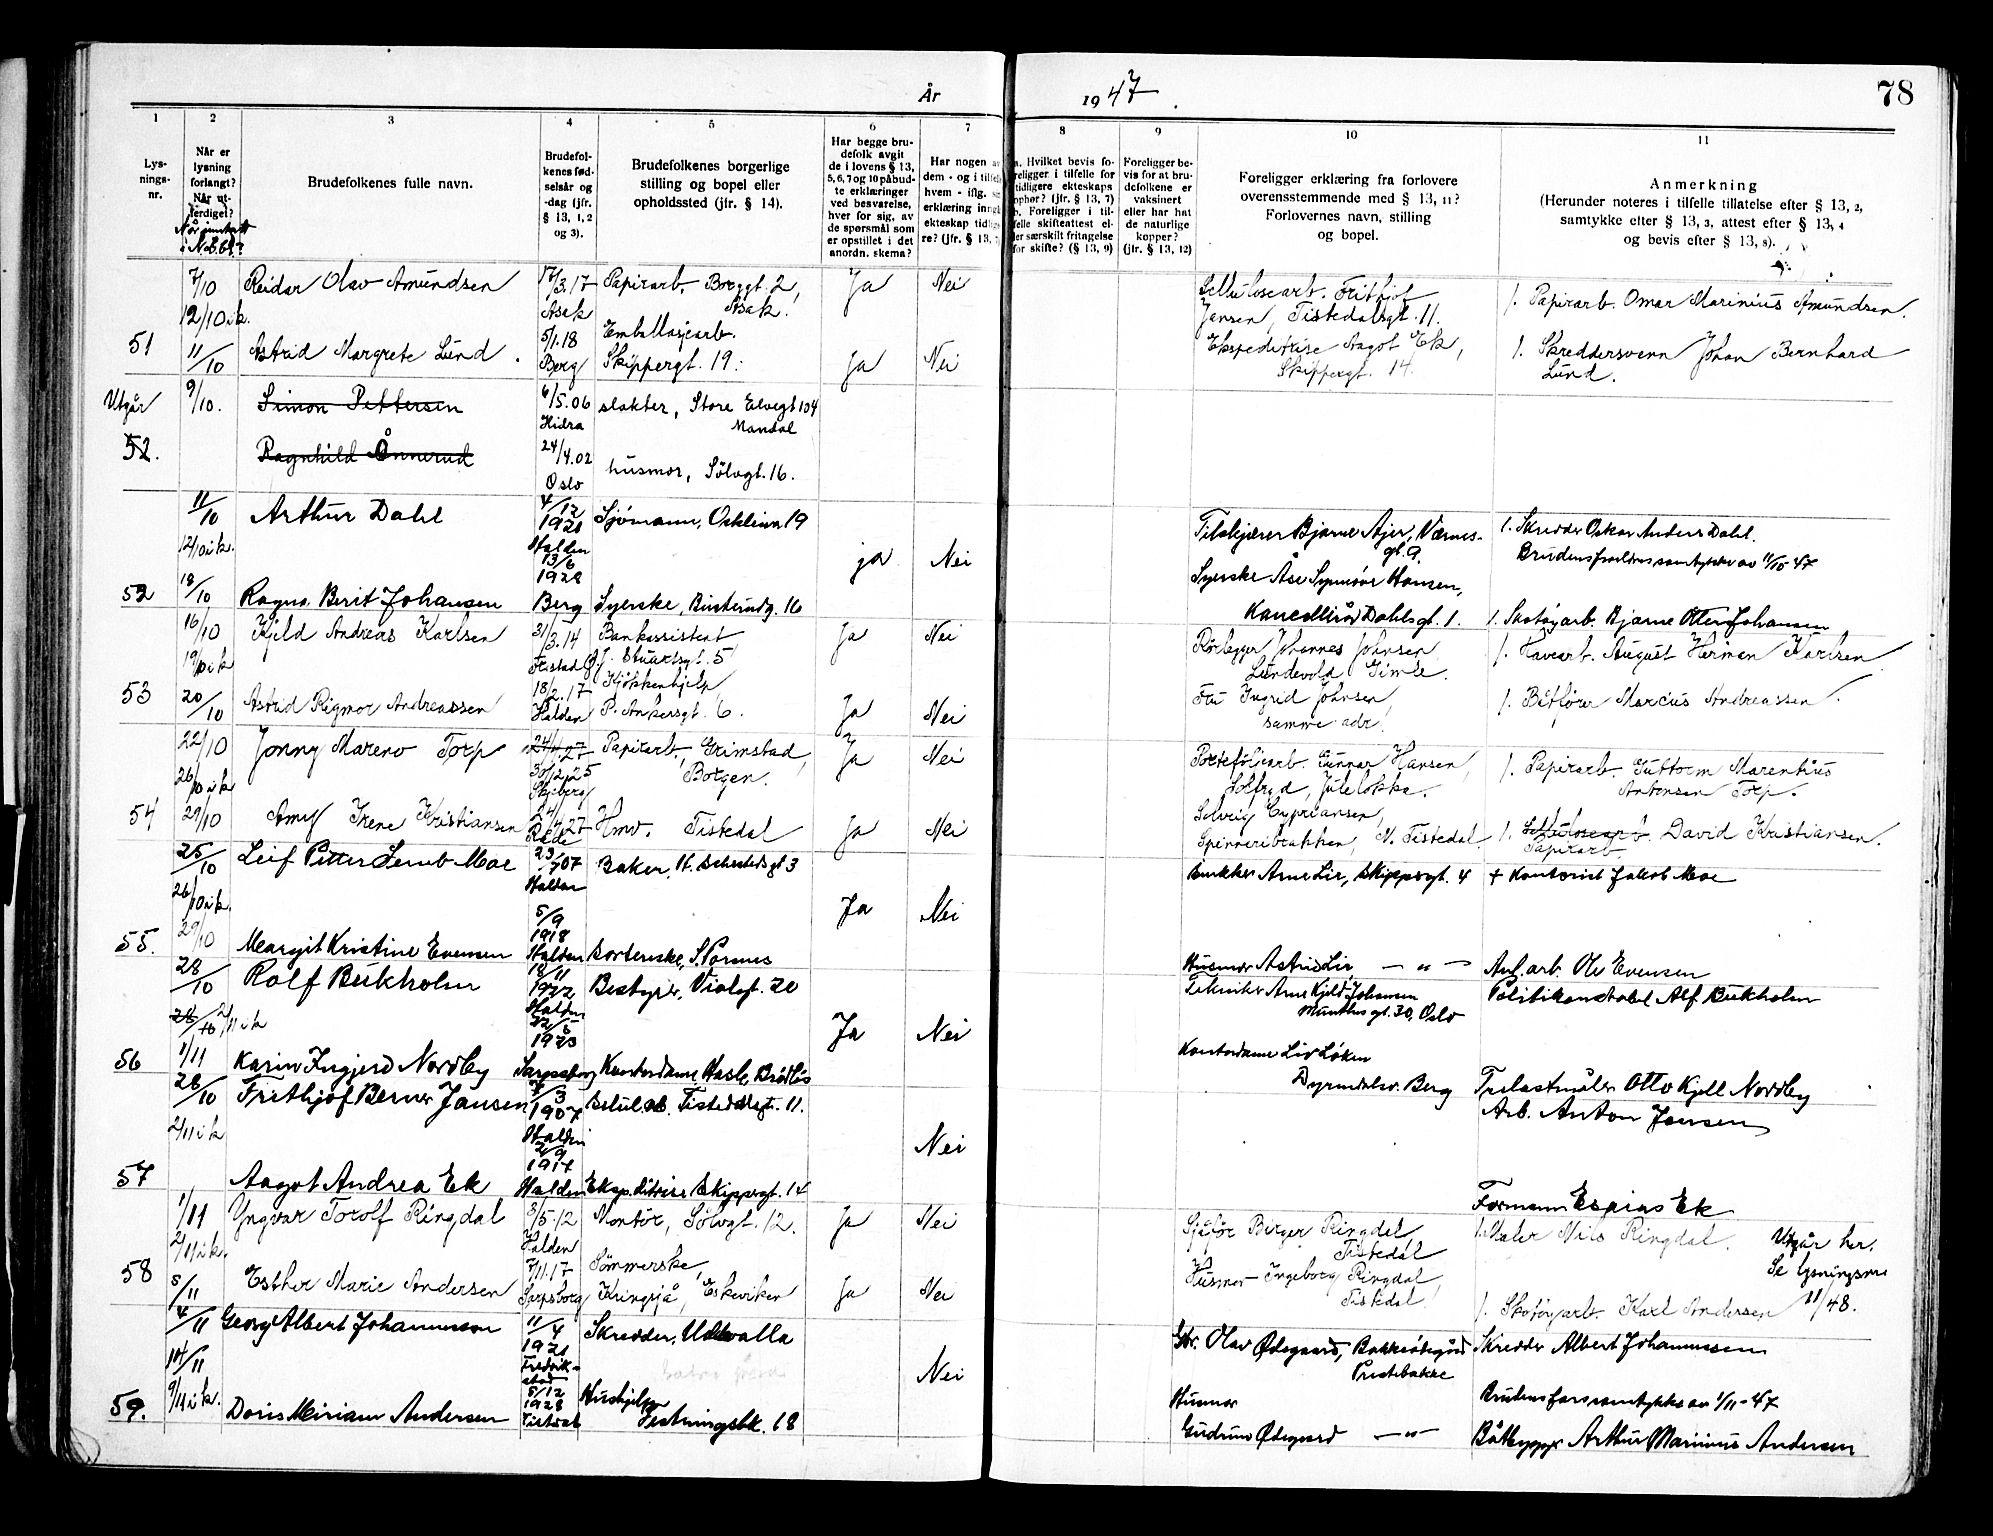 År 1947
78
1
2
3
4
5
6
7
8
9
10
11
Lys-
nings-
nr.
Når er
lysning
forlangt?
Når ut-
ferdiget?
Brudefolkenes fulle navn.
Brudefol-
kenes fød-
selsår og
-dag (jfr.
§ 13, 1, 2
og 3).
Brudefolkenes borgerlige
stilling og bopel eller
opholdssted (jfr. § 14).
Har begge bru-
defolk avgit
de i lovens § 13,
5, 6, 7 og 10 påbud-
te erklæringer
ved besvarelse,
hver for sig, av
de spørsmål som
er opstillet i det
anordn. skema?
Har nogen av
dem - og i tilfelle
hvem - iflg.
erklæring inngått
ekteskap tidlige-
re? (jfr. § 13,
a. Hvilket bevis fo-
religger i tilfelle for
tidligere ekteskaps
ophør? (jfr. § 13, 7)
b. Foreligger i til-
felle skifteattest el-
ler særskilt fritagelse
for skifte? (§ 13, 9)
Foreligger be-
vis for at bru-
defolkene er
vaksinert
eller har hat
de naturlige
kopper?
(jfr. § 13, 12)
Foreligger erklæring fra forlovere
overensstemmende med § 13, 11?
Forlovernes navn, stilling
og bopel.
Anmerkning
(Herunder noteres i tilfelle tillatelse efter § 13, 2,
samtykke efter § 13, 3, attest efter § 13, 4
og bevis efter § 13, 8).
7/10 Reidar Olav Amundsen 17/3.17 Papirarb. Borggt. 2, Ja Nei Cellulosearb. Frithjof
12/10 i k. Asak Asak. Jansen, Tistedalsgt. 11. f. Papirarb. Omar Marinius Amundsen.
51 11/10 Astrid Margrete Lund. 5/1.18 Emballasjearb. Ekspeditrise Aagot Ek, f. Skreddersvenn Johan Bernhard
Berg Skippergt. 19. Ja Nei Skippergt. 14. Lund.
Utgår 9/10. Simon Pettersen 6/5.06 slakter, Store Elvegt 104
Hidra Mandal
52. Ragnhild Ånnerud 24/4.02 husmor, Sölvgt. 16.
Oslo
11/10 Arthur Dahl 4/12 1921 Sjömann, Oskleiva 19 Bjarne Ajer, Værnes- f. Skredder Oskar Anders Dahl.
12/10 i k. Halden ja Nei gt. 9.
13/6 1928 Syerske Åse Synnöve Hansen,
52 18/10 Ragna Berit Johansen Berg Syerske, 16 Dahls gt. 1. f. Skotöyarb. Bjarne Otter Johansen
16/10 Kjeld Andreas Karlsen 31/3.14 Bankassistent Ja Nei Rörlegger Johannes Johnsen
19/10 i k Stuartsgt. 5 Lundevold Gimle. f. Havearb. August Herman Karlsen
18/2.17 Kjøkkenhjelp
53 20/10 Astrid Rigmor Andreassen Halden P. Ankersgt. 6. Ja Nei Fru Ingrid Johnsen, f. Båtförer Marcus Andreassen.
samme adr.
22/10 Jonny Mareno Torp 24/4.27 Papirarb, Grimstad, Ja Nei Porteföljearb. Gunnar Hansen, f. Papirarb. Guttorm Marentius
26/10 i k 30/12.25 Borgen. Solfryd, Juleløkka. Antonsen Torp.
Skjeberg
54 29/10 Amy Irene Kristiansen 24/4.27 Hmv. Tistedal Ja Nei Solveig Cypriansen, f. Cellulosearb. David Kristiansen.
Råde Spinneribrakken, N. Tistedal. Papirarb.
25/10 Leif Petter Lerub Moe 23/7 07 Baker, H. Schultedsgt 3 Arne Lie, Skippergt. 4 + Kontorist Jakob Moe
26/10 i k. Halden Ja Nei
29/10 5/9 1918
55. Margit Kristine Evensen Halden Sorterske, S. Porsnes Husmor Astrid Lie, — " — Anl. arb. Ole Evensen
28/10 Rolf Bükholm 18/11 1922 Bestyrer, Violgt. 20 Tekniker Arne Kjeld Johansen Politikonstabel Alf Bükholm
28/10 2/11 i k Halden Munthes gt. 30, Oslo
22/5 1923 Ja Nei
56 1/11 Karin Ingjerd Nordby Sarpsborg Kontordame, Hasle, Brödløs Kontordame Liv Löken
Berg Trelastmåler Otto Kjell Nordby
28/10 Frithjof Berner Jansen 7/3 1907 Selul. arb. Tistedalsgt. 11. Arb. Anton Jansen
2/11 i k Halden Nei
2/9 1914
57 Aagot Andrea Ek Halden Ekspeditrise Skippergt. 14 Formann Esaias Ek
1/11 Yngvar Torolf Ringdal 3/5.12 Montör, Sölvgt. 12. Ja Nei Sjåför Birger Ringdal f. Maler Nils Ringdal. Utgår her.
2/11 i k. Halden Tistedal Se lysningsnr
58 7/11.17 Sömmerske, Husmor Ingeborg Ringdal 11/48.
5/11 Esther Marie Andersen Sarpsborg Kringsjå, Eskeviken Ja Nei Tistedal f. Skotöyarb. Karl Andersen
4/11 Georg Albert Johannesson 11/4 1921 Skredder, Uddevalla Gbr. Olav Ødegaard, Skredder Albert Johannessen
Fredrik-
stad Nei Prestebakke
9/11 i k. 5/12 1928 Hushjelp Husmor Brudens fars samtykke av 1/11-47
59. Doris Miriam Andersen Tistedal Festningsbk. 18 Gudrun Ødegaard — " — Båtbygger Arthur Marinius Andersen